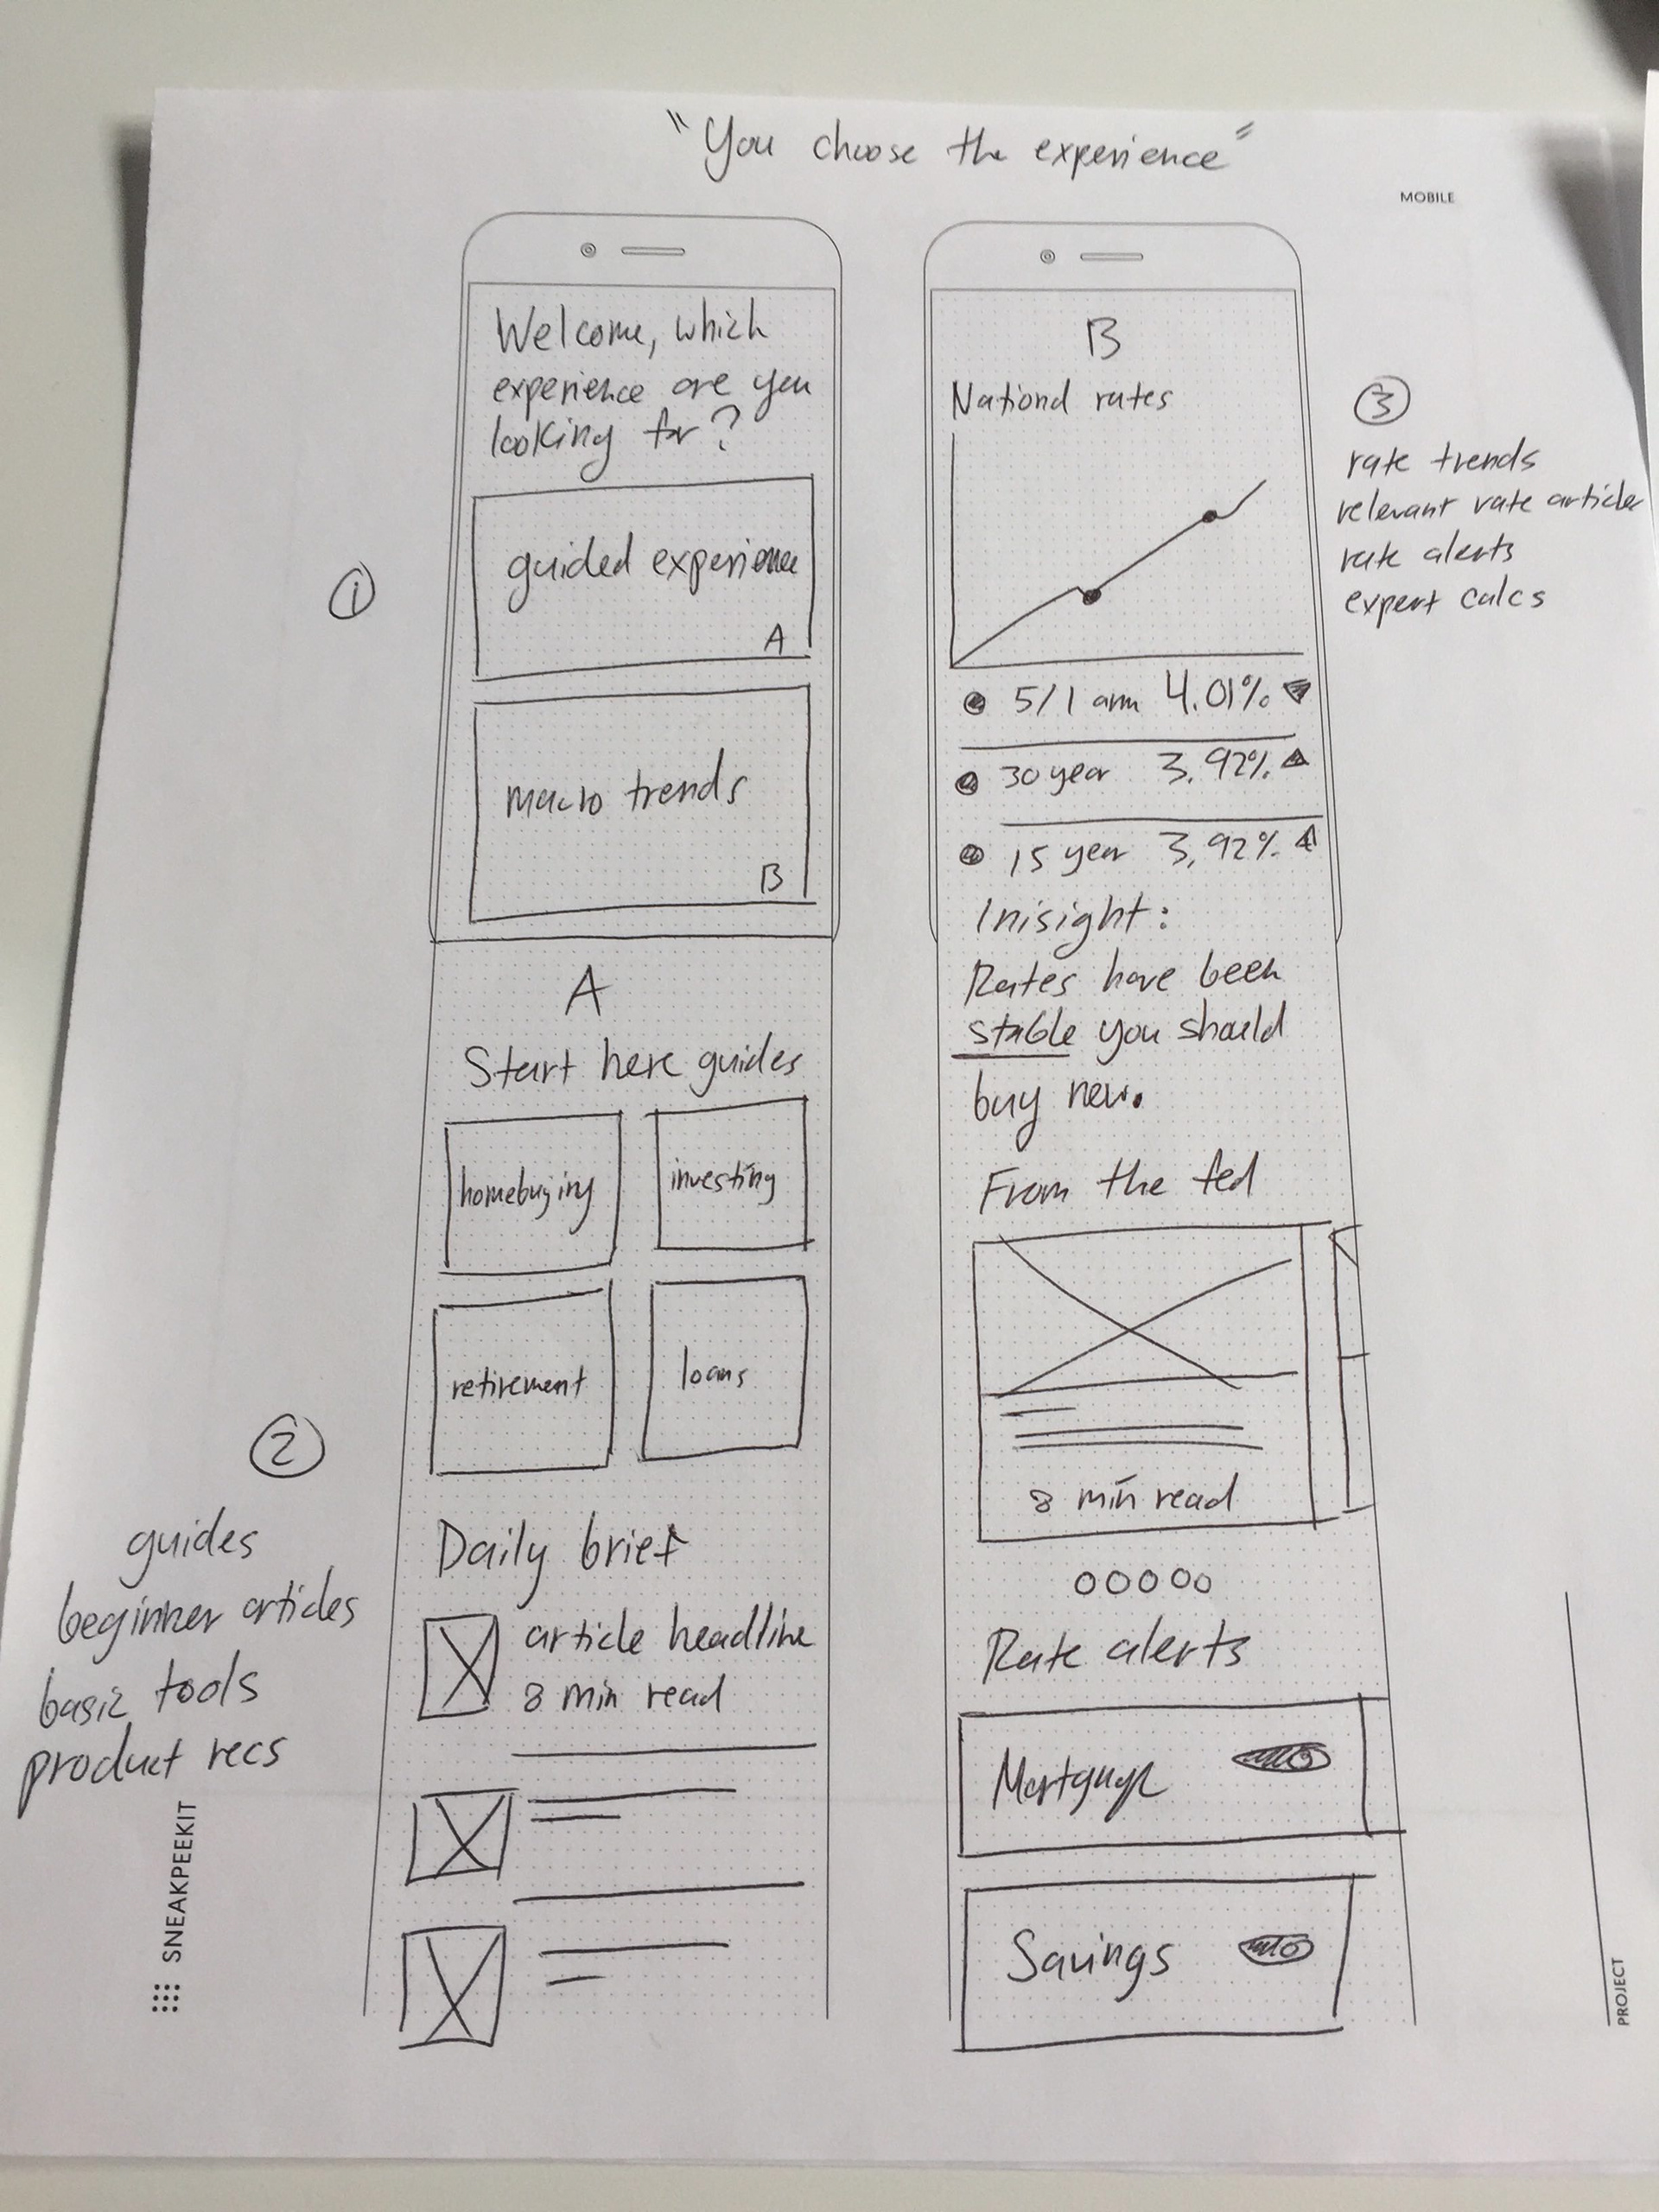 "You choose the experience"
MOBILE
Welcome, which
experience are you
looking for?
1
guided experience
A
macro trends
B
A
Start here guides
homebuying
investing
retirement
loans
2
guides
beginner articles
basic tools
product recs
Daily brief
article headline
8 min read
B
National rates
5/1 arm 4.01%
30 year 3.92%
15 year 3.92%
Inisight:
Rates have been
stable you should
buy now.
From the fed
8 min read
Rate alerts
Mortgage
Savings
3
rate trends
relevant rate article
rate alerts
expert calcs
SNEAKPEEKIT
PROJECT